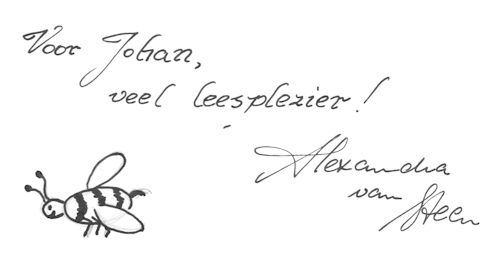 Voor Johan,
veel leesplezier!
Alexandra
van Steen